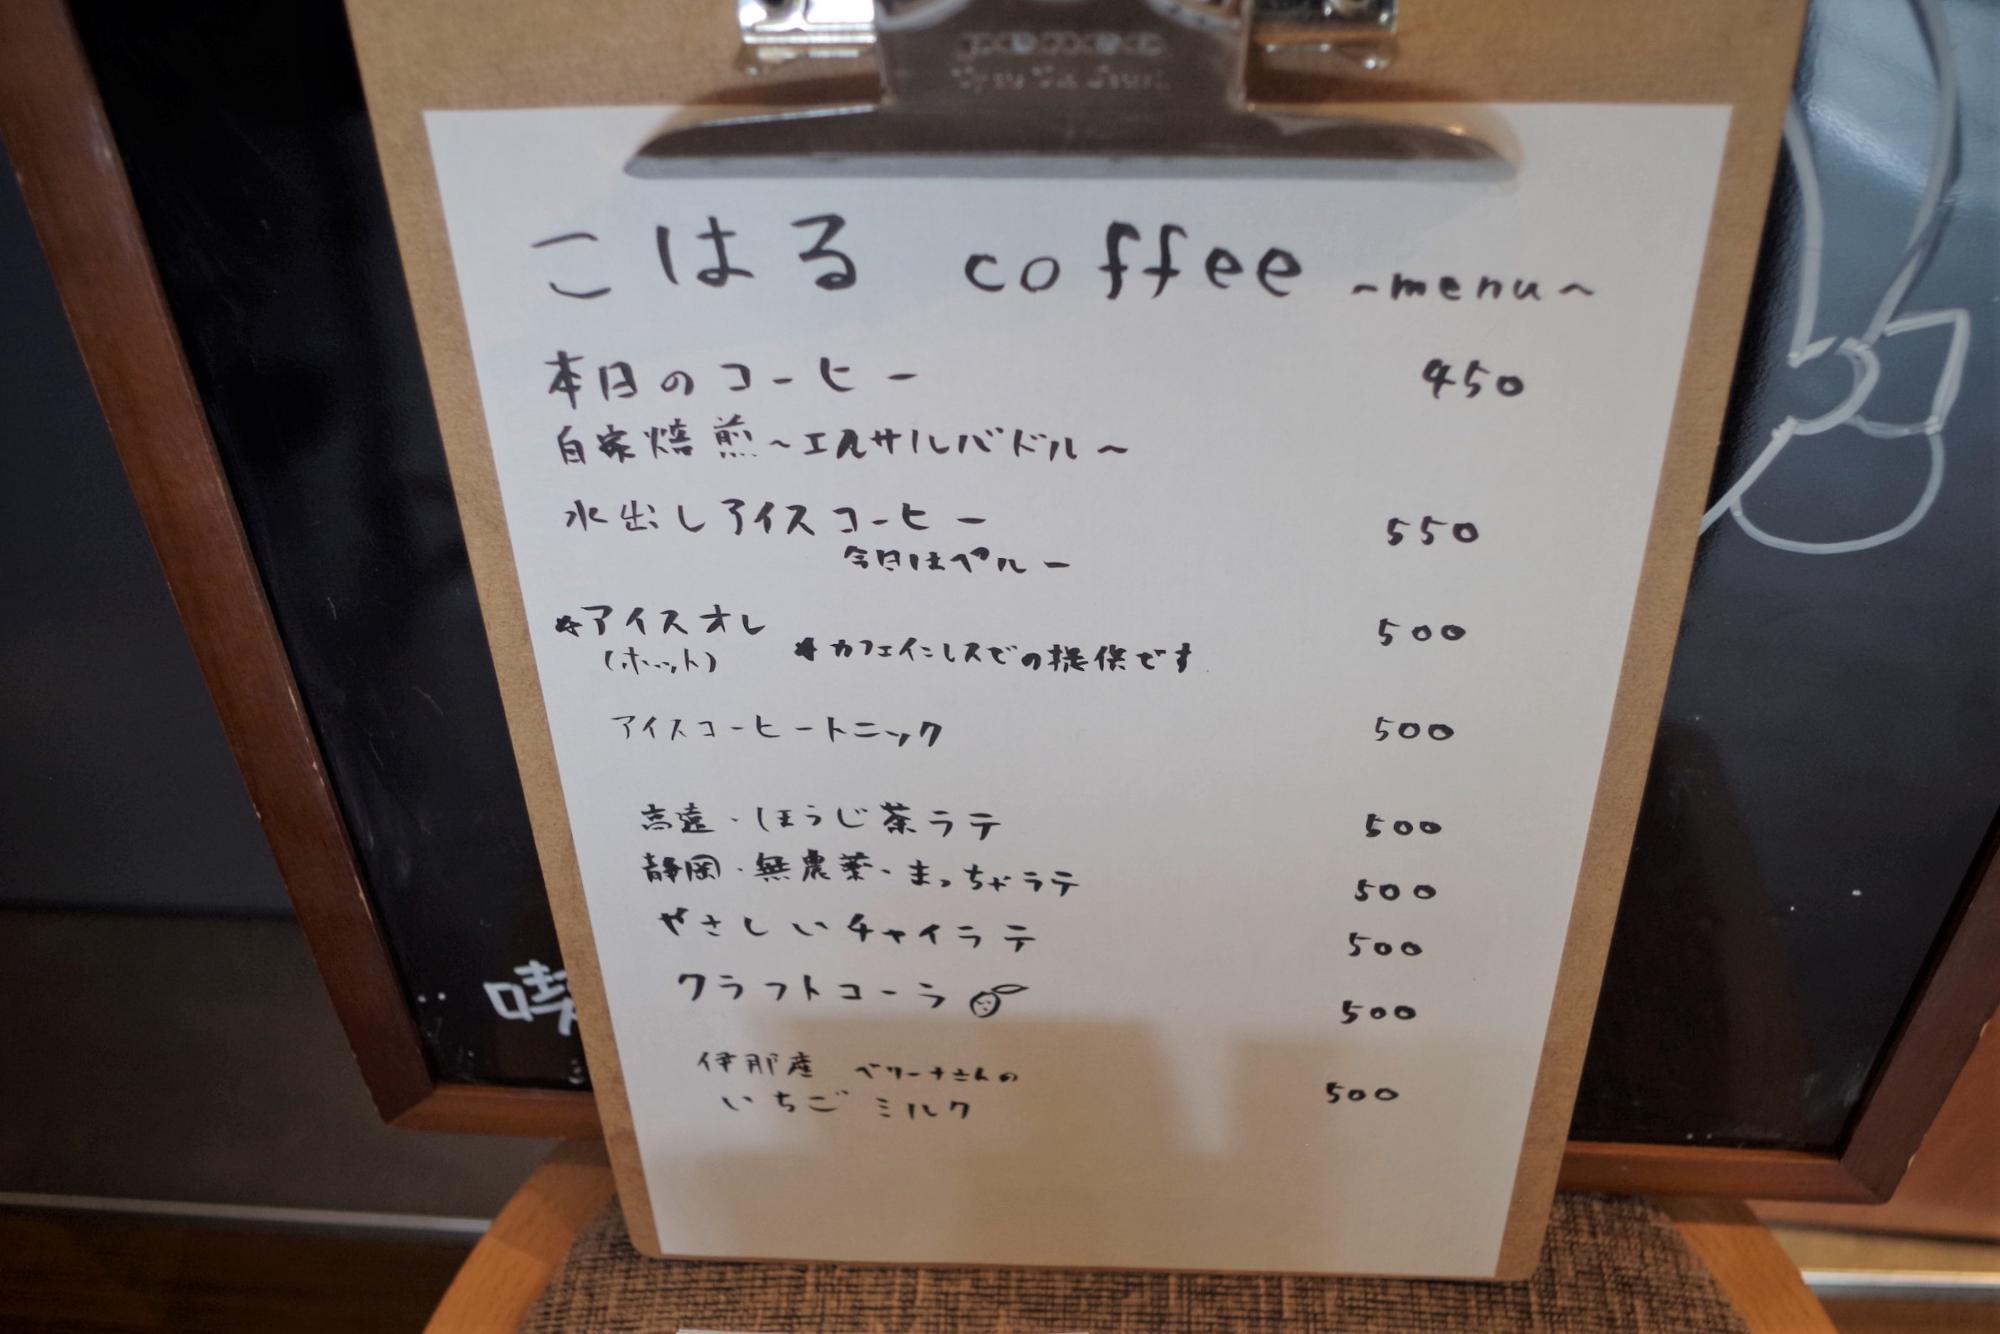 こはる coffee ~menu~
本日のコーヒー 450
自家焙煎~エルサルバドル~
水出しアイスコーヒー 550
今日はペルー
*アイスオレ 500
(ホット) *カフェインレスでの提供です
アイスコーヒートニック 500
高遠・ほうじ茶ラテ 500
静岡・無農薬・まっちゃラテ 500
やさしいチャイラテ 500
クラフトコーラ 500
伊那産 ベリーナさんの
いちごミルク 500
喫